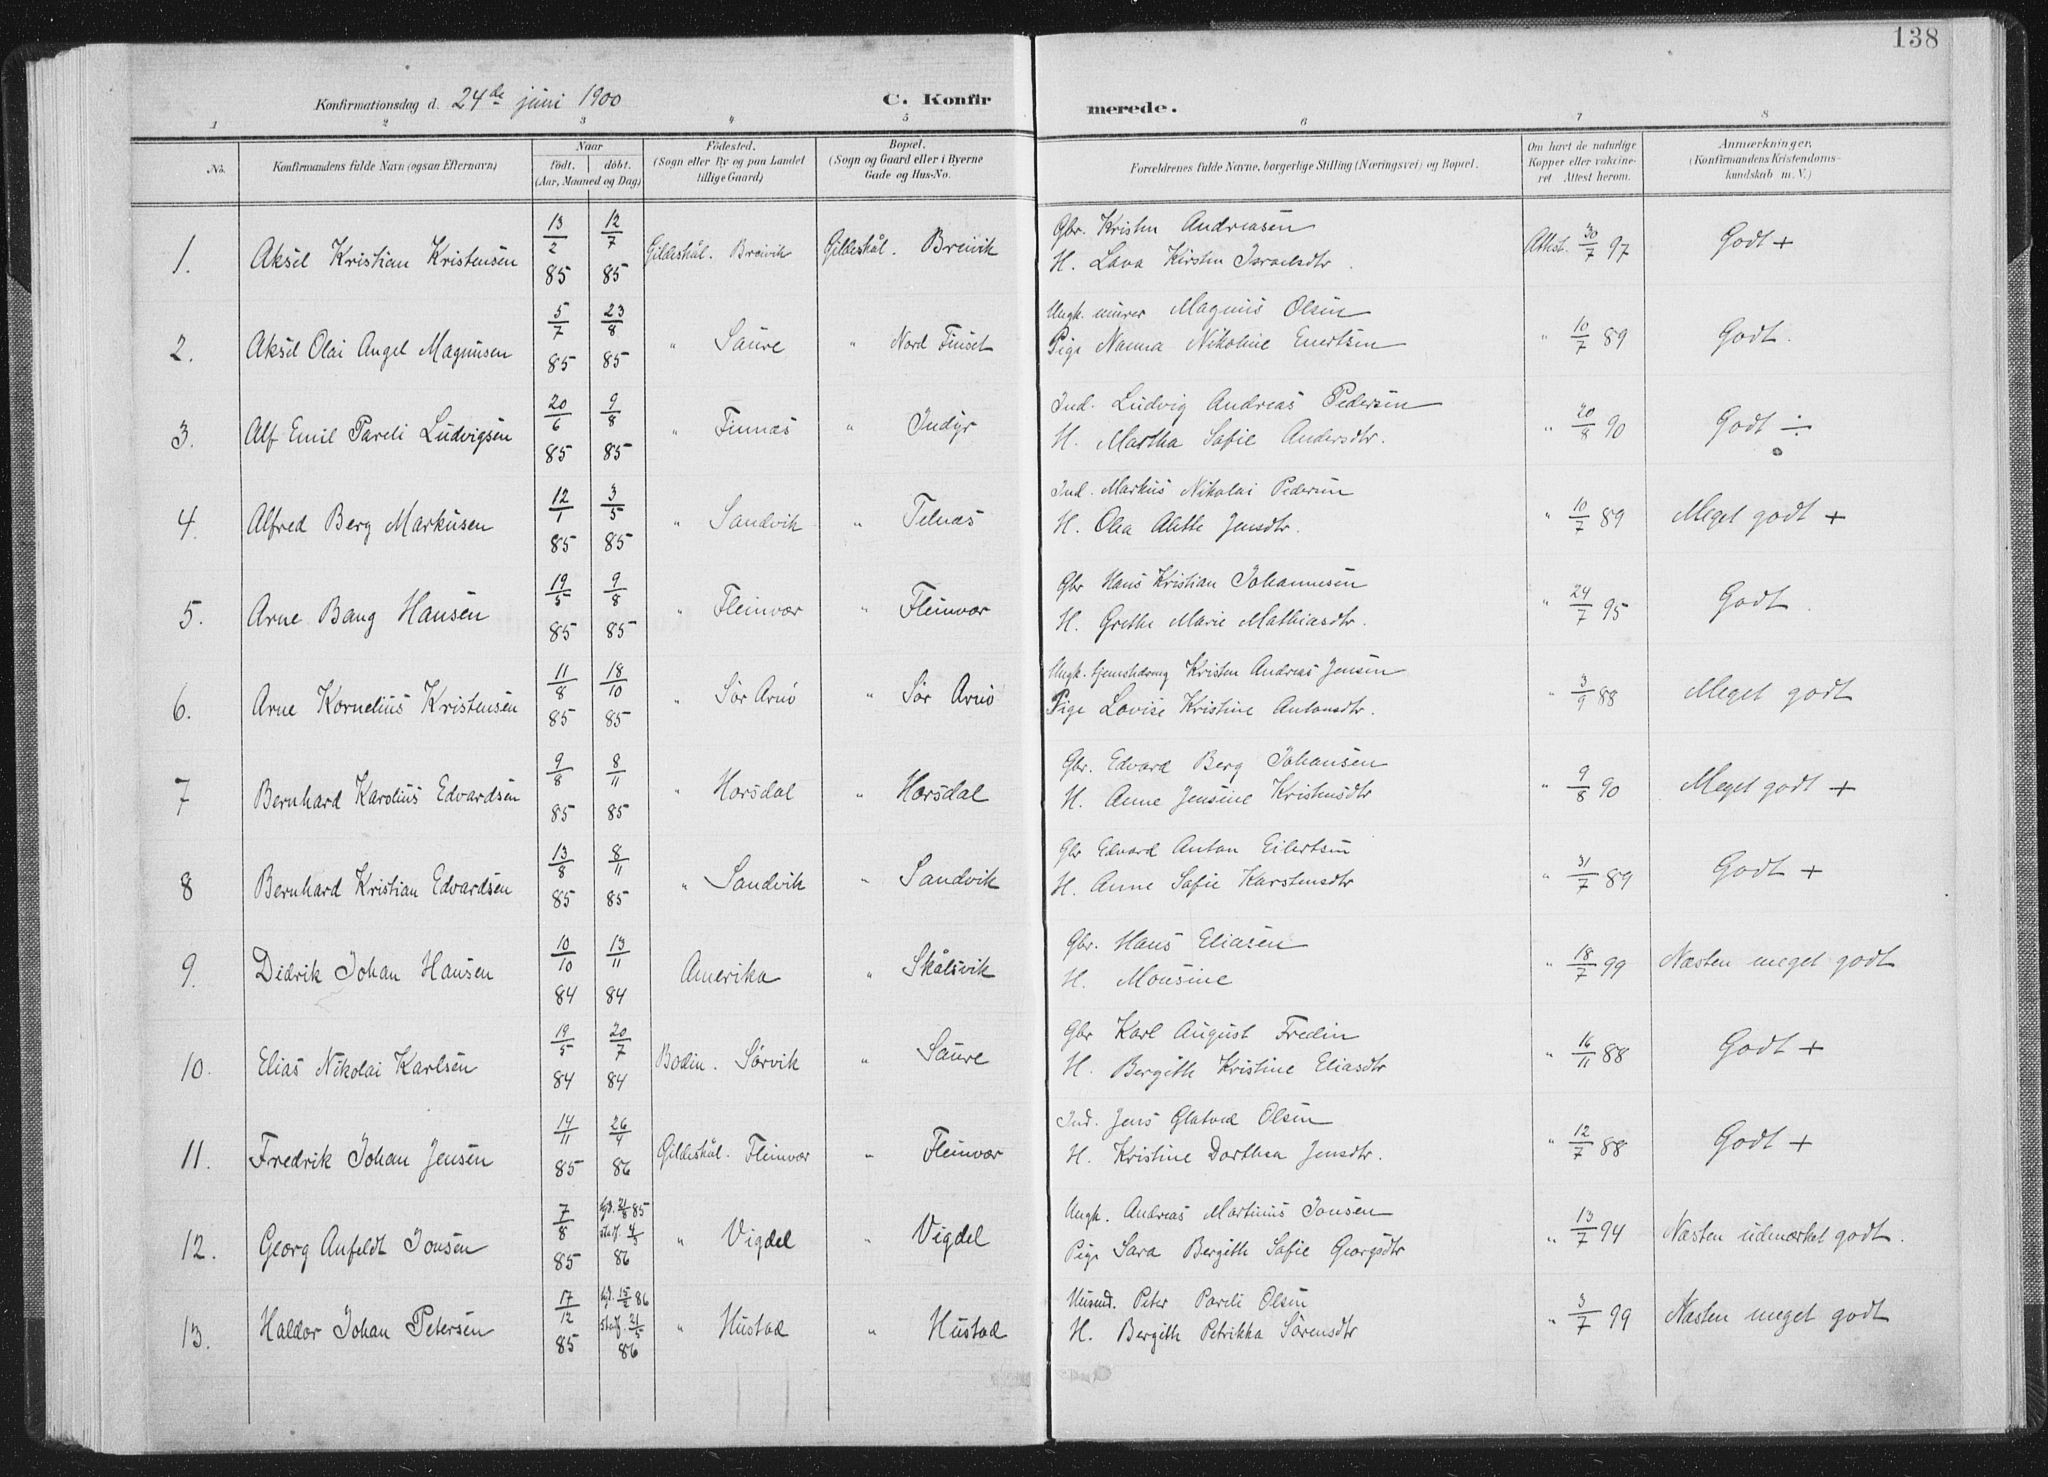 138
Konfirmationsdag d. 24de juni 1900 C. Konfirmerede.
1 2 3 4 5 6 7 8
No. Konfirmandens fulde Navn (ogsaa Efternavn) Naar födt. döbt. (Aar, Maaned og Dag) Födested. (Sogn eller By og paa Landet tillige Gaard) Bopæl. (Sogn og Gaard eller i Byerne Gade og Hus-No. Forældrenes fulde Navne, borgerlige Stilling (Næringsvei) og Bopæl. Om havt de naturlige Kopper eller vaccineret Attest herom. Anmerkninger, (Konfirmandens Kristendomskundskab m. V.)
1. Aksel Kristian Kristensen 13/2 85 12/7 85 Gildeskål. Breivik Gildeskål. Breivik Gbr. Kristen Andreasen Attest. 30/7 97 Godt +
H. Lava Kirsten Israelsdtr.
2. Aksel Olai Angel Magnusen 5/7 85 23/8 85 " Saure " Nord Finset Ungk. murer Magnus Olsen " 10/7 89 Godt.
Pige Nanna Nikoline Enertsen
3. Alf Emil Pareli Ludvigsen 20/6 85 9/8 85 " Finnæs " Indyr Ind. Ludvig Andreas Pedersen " 20/8 90 Godt ÷
H. Martha Safie Andersdtr.
4. Alfred Berg Markusen 12/1 85 3/5 85 " Sandvik " Telnæs Ind. Markus Nikolai Pedersen " 10/7 89 Meget godt +
H. Olea Alette Jensdtr.
5. Arne Bang Hansen 19/5 85 9/8 85 " Fleinvær " Fleinvær Gbr Hans Kristian Johannesen " 24/7 95 Godt.
H. Grethe Marie Mathiasdtr.
6. Arne Kornelius Kristensen 11/8 85 18/10 85 " Sör Arnö " Sör Arnö Ungk. tjenestedreng Kristen Andreas Jensen " 3/9 88 Meget godt
Pige Lovise Kristine Antonsdtr.
7 Bernhard Karolius Edvardsen 9/8 85 8/11 85 " Horsdal " Horsdal Gbr. Edvard Berg Johansen " 9/8 90 Meget godt +
H. Anne Jensine Kristensdtr
8 Bernhard Kristian Edvardsen 13/8 85 8/11 85 " Sandvik " Sandvik Gbr Edvard Anton Eilertsen " 31/7 89 Godt +
H. Anne Safie Karstensdtr
9. Didrik Johan Hansen 10/10 84 13/11 84 Amerika " Skålsvik Gbr. Hans Eliasen " 18/7 99 Næsten meget godt
H. Monsine
10. Elias Nikolai Karlsen 19/5 84 20/7 84 Bodin. Sörvik " Saure Gbr Karl August Fredin " 16/11 88 Godt +
H. Bergith Kristine Eliasdtr
11. Fredrik Johan Jensen 14/11 85 26/4 86 Gildeskål. Fleinvær " Fleinvær Ind. Jens Glatved Olsen " 12/7 88 Godt +
H. Kristine Dorthea Jensdtr.
12. Georg Anfeldt Jonsen 7/8 85 hjd. 21/8 85 staf. 4/5 86 " Vigdel " Vigdel Ungk. Andreas Martinus Jonsen " 13/7 94 Næsten udmærket godt.
Pige Sara Bergith Safie Georgsdtr
13. Haldor Johan Petersen 17/12 85 hjd. 15/2 86 staf. 21/5 86 " Hustad " Hustad Husmd. Peter Pareli Olsen " 3/7 99 Næsten meget godt
H. Bergith Petrikka Sörensdtr